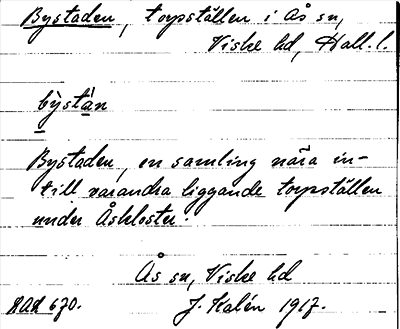 Bystaden, torpställen i Ås sn,
Viske hd, Hall. l.
bỳstán
Bystaden, en samling nära in-
till varandra liggande torpställen
under Åskloster.
Ås sn, Viske hd
AAH 670. J. Kalén 1917.